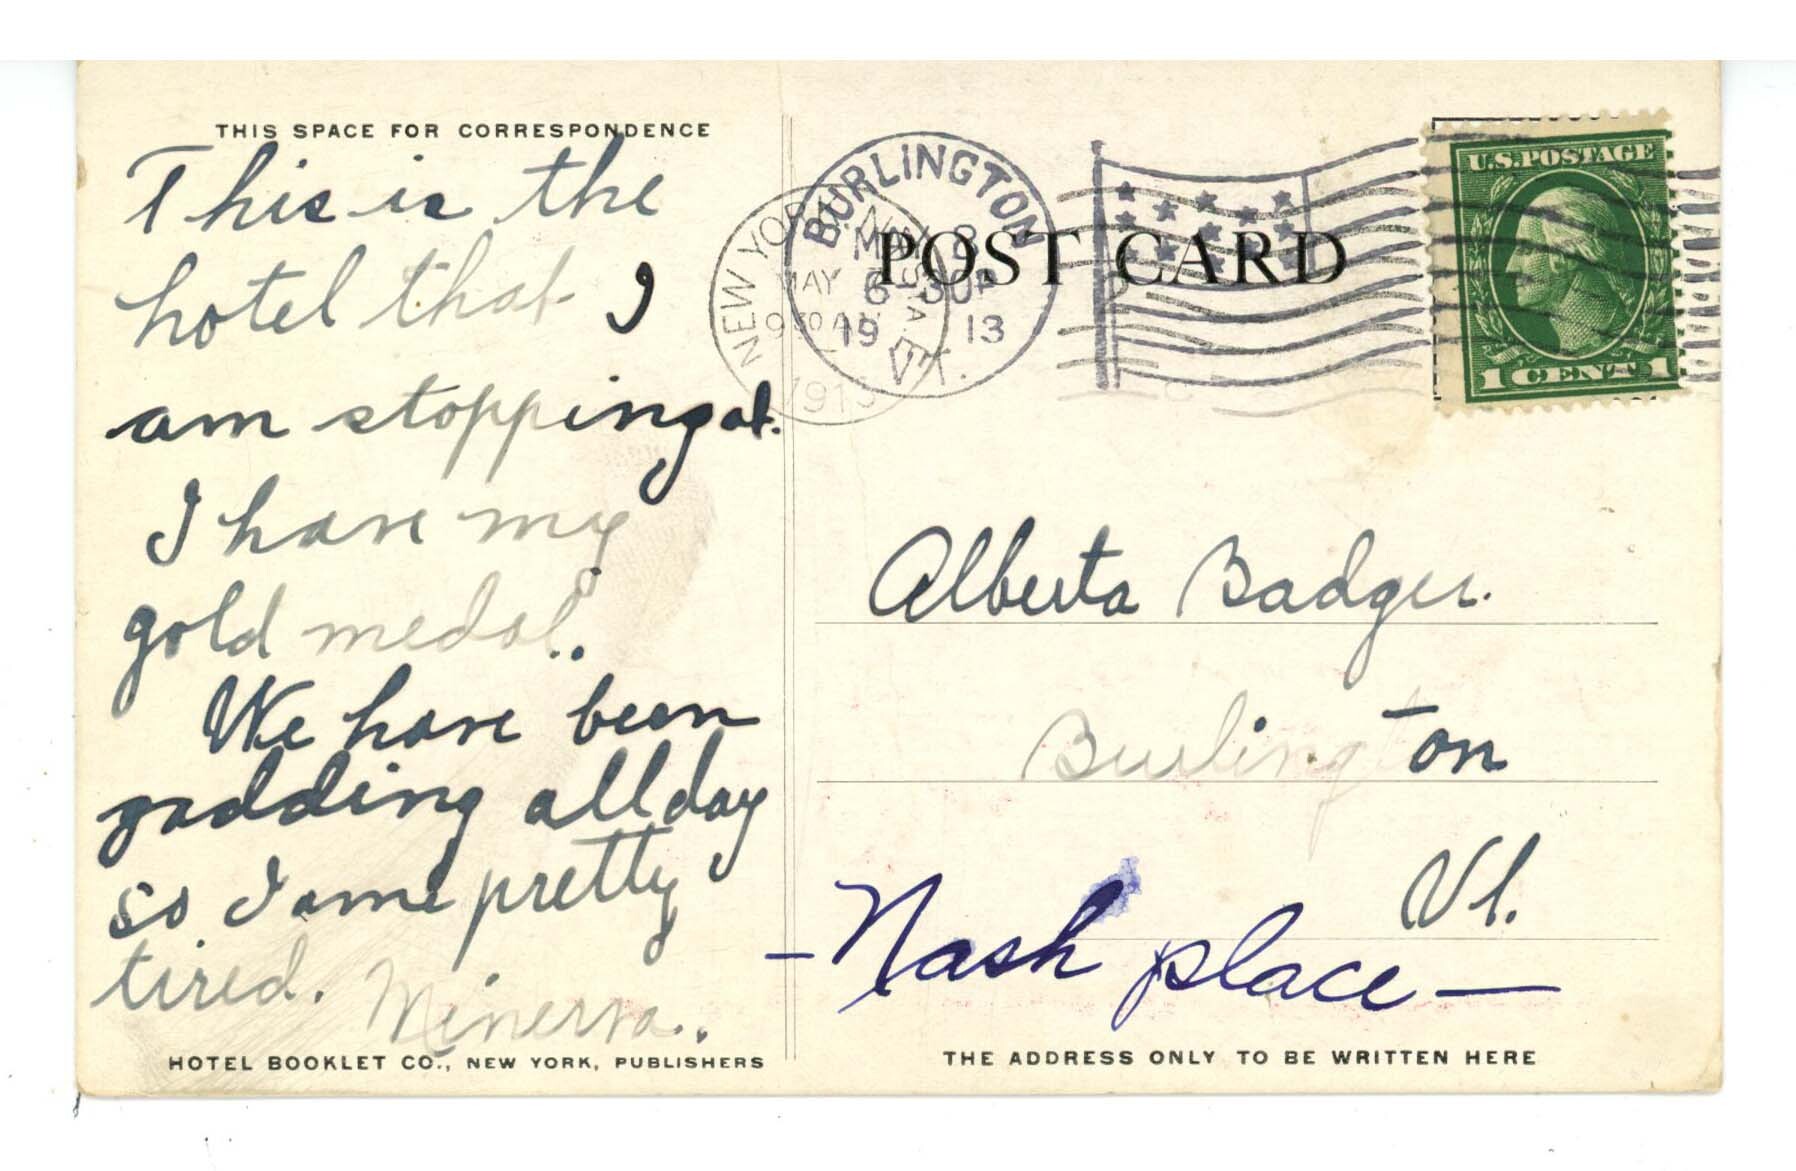 THIS SPACE FOR CORRESPONDENCE
This is the
hotel that I
am stopping at.
I have my
gold medal.
We have been
gadding all day
so I ame pretty
tired. Minerva.
HOTEL BOOKLET CO., NEW YORK, PUBLISHERS
POST CARD
BURLINGTON
MAY 8
6 30P
19 13
VT.
NEW YORK, N.Y. STA. E
MAY
9 30 A
1913
U.S. POSTAGE
1 CENT 1
Alberta Badger.
Burlington
Vt.
- Nash place -
THE ADDRESS ONLY TO BE WRITTEN HERE